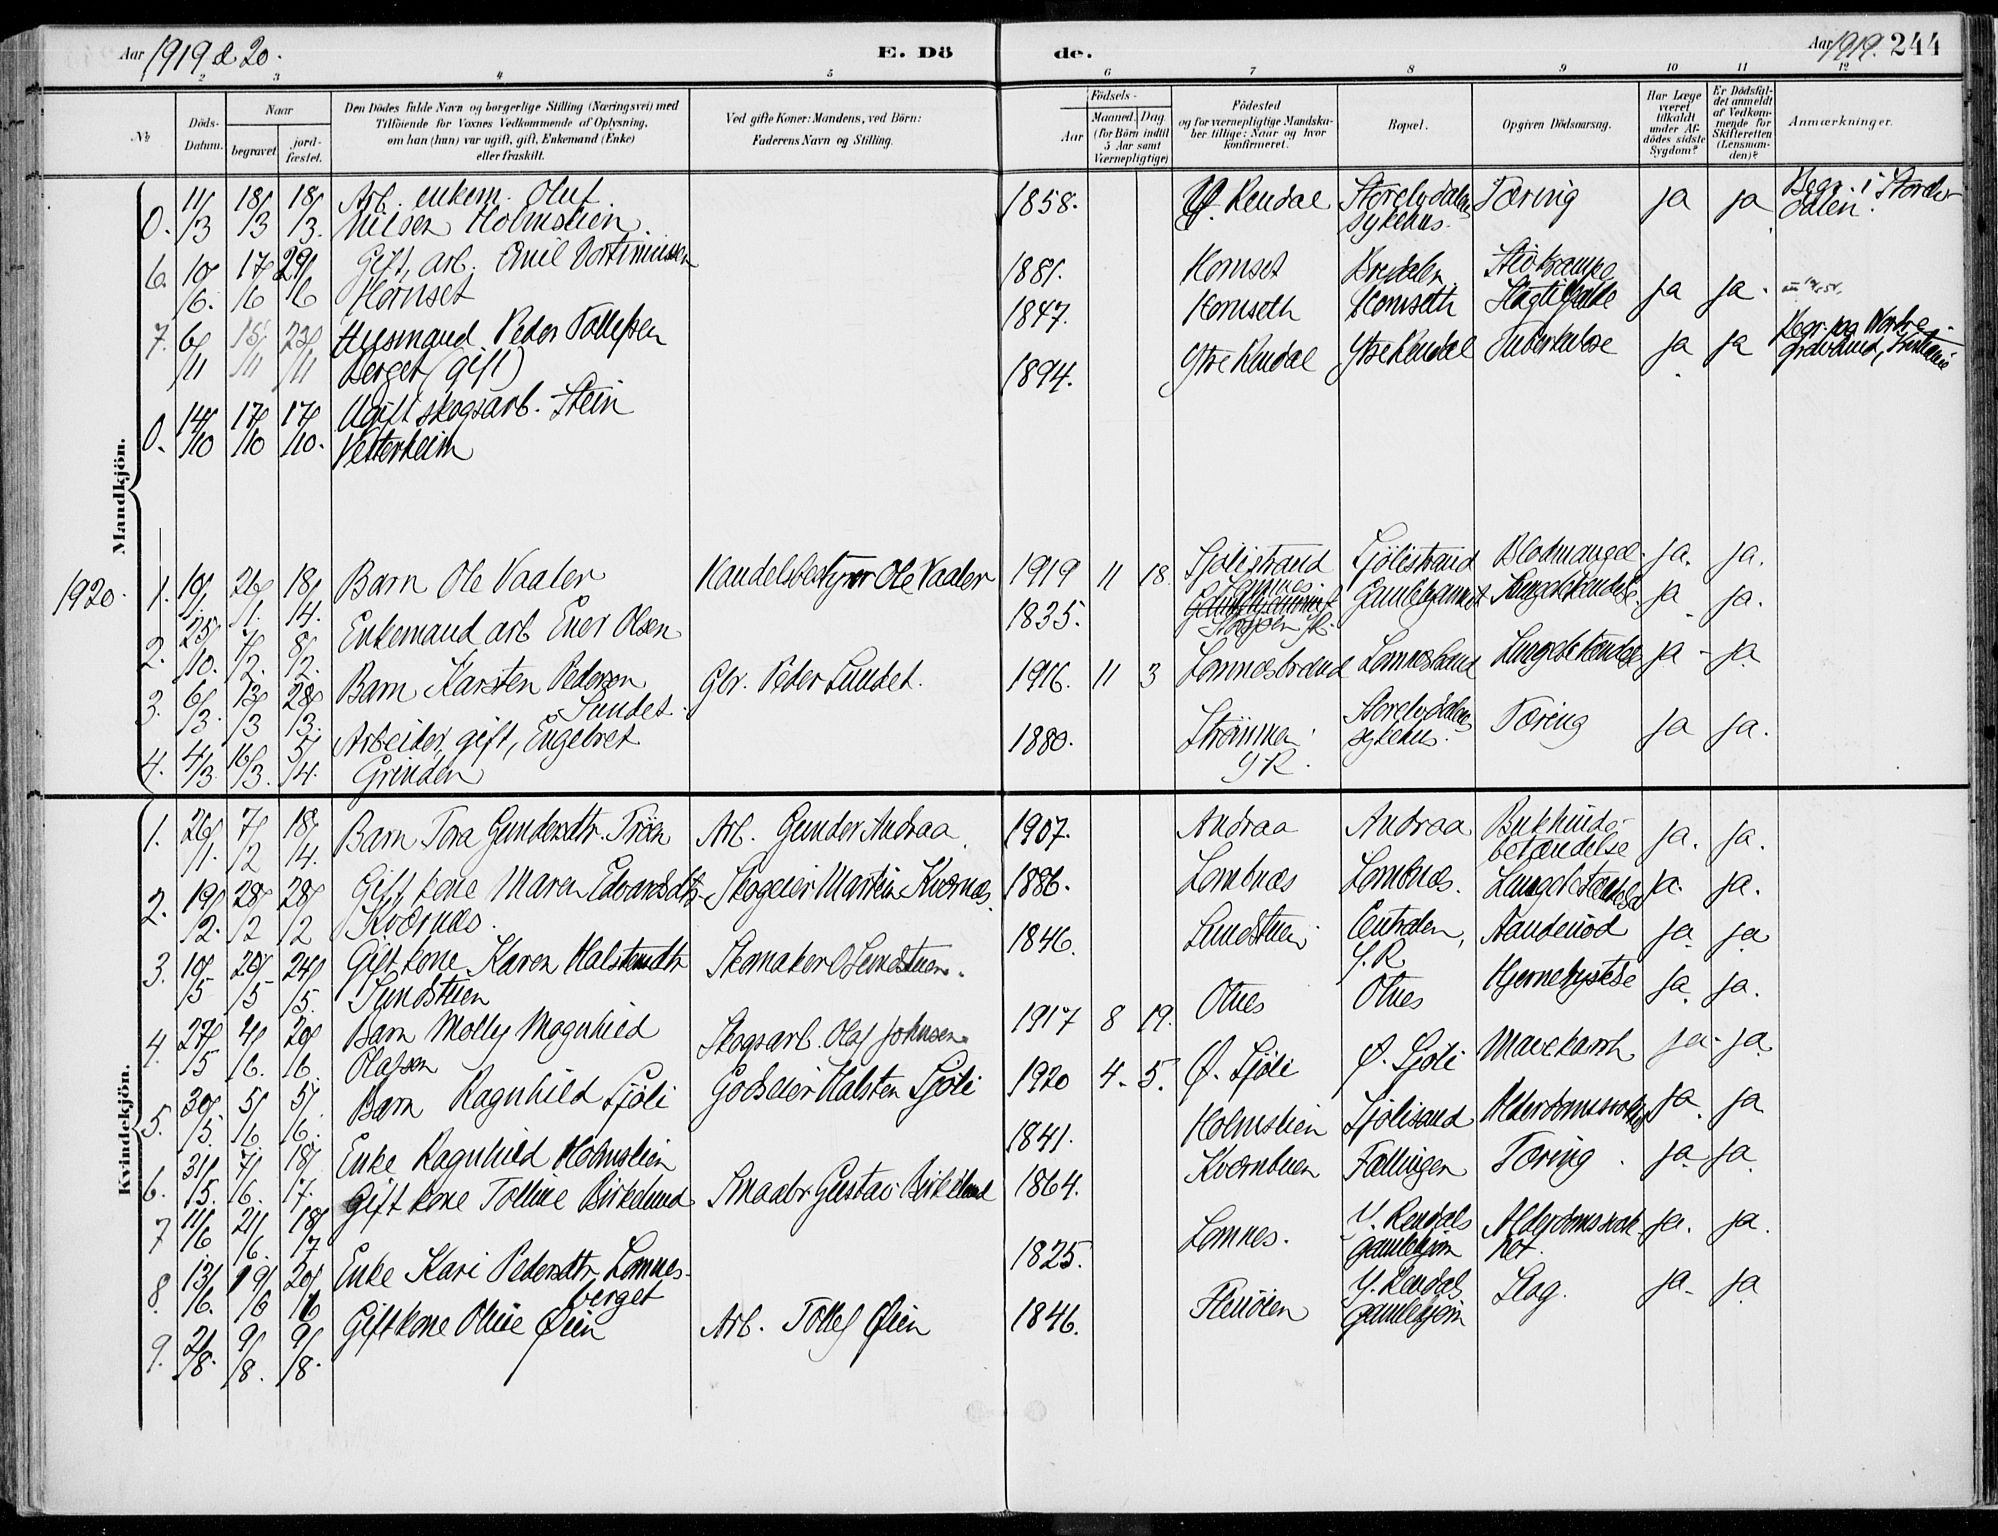 Aar 1919 & 20.
E. Dö
de.
Aar 1919. 244
2 3 4 5 6 7 8 9 10 11 12
No
Döds-
Datum.
Naar
begravet.
jord-
fæstet.
Den Dödes fulde Navn og borgerlige Stilling (Næringsvei) med
Tilföiende for Voxnes Vedkommende af Oplysning,
om han (hun) var ugift, gift, Enkemand (Enke)
eller fraskilt.
Ved gifte Koner: Mandens, ved Börn:
Faderens Navn og Stilling.
Födsels-
Aar
Maaned. Dag.
(for Börn indtil
5 Aar samt
Værnepligtige)
Födested
og for værnepligtige Mandska-
ber tillige: Naar og hvor
konfirmeret.
Bopæl.
Opgiven Dödsaarsag.
Har Læge
været
tilkaldt
under Af-
dødes sidste
Sygdom?
Er Dödsfal-
det anmeldt
af Vedkom-
mende for
Skifteretten
(Lensman-
den)?
Anmærkninger.
Mandkjön.
0. 11/3 18/3 18/3. Arb. enkem. Oluf
Nilsen Holmslien. 1858. Y. Rendal Storelvdalens
sykehus. Tæring ja ja Begr. i Storelv-
dalen.
6. 10/6. 17/6 29/6 Gift, arb. Emil
Hornset 1881. Hornset
7. 6/11 15/11 23/11 Husmand Peder Tollefsen
berget (gift) 1847. Hornseth Hornseth ja ja.
0. 14/10 17/10 17/10. Ugift skogsarb. Stein
Vetterheim 1894. Ytre Rendal Ytre Rendal Tuberkulose ja ja Begr. paa Nordre
gravlund, Kristiania
1920.
1. 10/1. 26/1. 18/4. Barn Ole Vaaler Handelsbestyrer Ole Vaaler 1919 11 18. Sjölistrand Sjölistrand Blodmangel ja. ja.
2. 25/10. 7/2. 8/2. Enkemand arb Ener Olsen 1835. Gamlehjemmet ja ja.
3. 6/3. 13/3 28/3. Barn Karsten Pedersen
Sundet. Gbr. Peder Sundet. 1916. 11 3 Lomnesstrand Lomnesstrand Lungebetændelse ja - ja
4. 4/3. 16/3. 5/4. Arbeider, gift, Engebret
Grinden 1880. Strömmen
Y R. Storelvdalens
sykehus. Tæring ja ja.
Kvindekjön.
1. 26/1. 7/2 18/4. Barn Tora Gundersdtr. Trøen Arb. Gunder Andraa. 1907. Andraa Andraa Bukhinde-
betændelse ja. ja.
2. 19/2. 28/2 28/2 Gift kone Maren Edvardsdtr.
Kværnæs. Skogeier Martin Kværnæs. 1886. Lombnæs Lombnæs. Lungebetændelse ja. ja.
3. 10/5 20/5 24/5. Gift kone Karen Halstendtr
Sundstuen Skomaker O Sundstuen. 1846. Sundstuen Centralen,
Y. R Aandenød ja ja
4. 27/5 4/6. 20/6. Barn Molly Magnhild
Olafsen Skogsarb. Olaf Johnsen 1917 8 19. Otnes Otnes Hjernerystelse ja. ja.
5. 30/5. 5/6 5/6. Barn Ragnhild Sjöli Godseier Halsten Sjöli 1920 4. 5. Ø. Sjöli Ø. Sjöli Mavekatarrh ja - ja.
6. 31/5. 7/6. 18/7. Enke Ragnhild Holmslien 1841. Holmslien Sjölisand Alderdomssvakhet ja. ja
7 11/6 21/6. 18/7 Gift kone Tolline Birkelund Smaabr. Gustav Birkelund 1864. Kvernbuen Fællingen Tæring. ja. ja.
8. 13/6. 19/6 20/6 Enke Kari Pedersdtr. Lomnes-
berget 1825. Lomnes. Y. Rendals
gamlehjem Alderdomssvak-
het. ja. ja.
9. 2/8. 9/8. 9/8. Gift kone Oline Øien Arb. Tollef Øien 1846. Y. Rendals
gamlehjem Slag. ja. ja